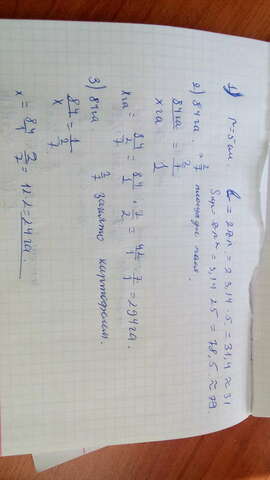 1) r=5см. l = 2πr = 2·3,14·5 = 31,4 ≈ 31
Sкр = πr² = 3,14·25 = 78,5 ≈ 79.
2) 84га. = 2/7 площади поля.
84га/xга = 2/7/1
xга = 84/2/7 = 84/1 · 7/2 = 42/1 · 7/1 = 294га.
3) 84га 2/7 занято картофелем.
84/x = 1/2/7
x = 84/1 · 2/7 = 12·2 = 24га.